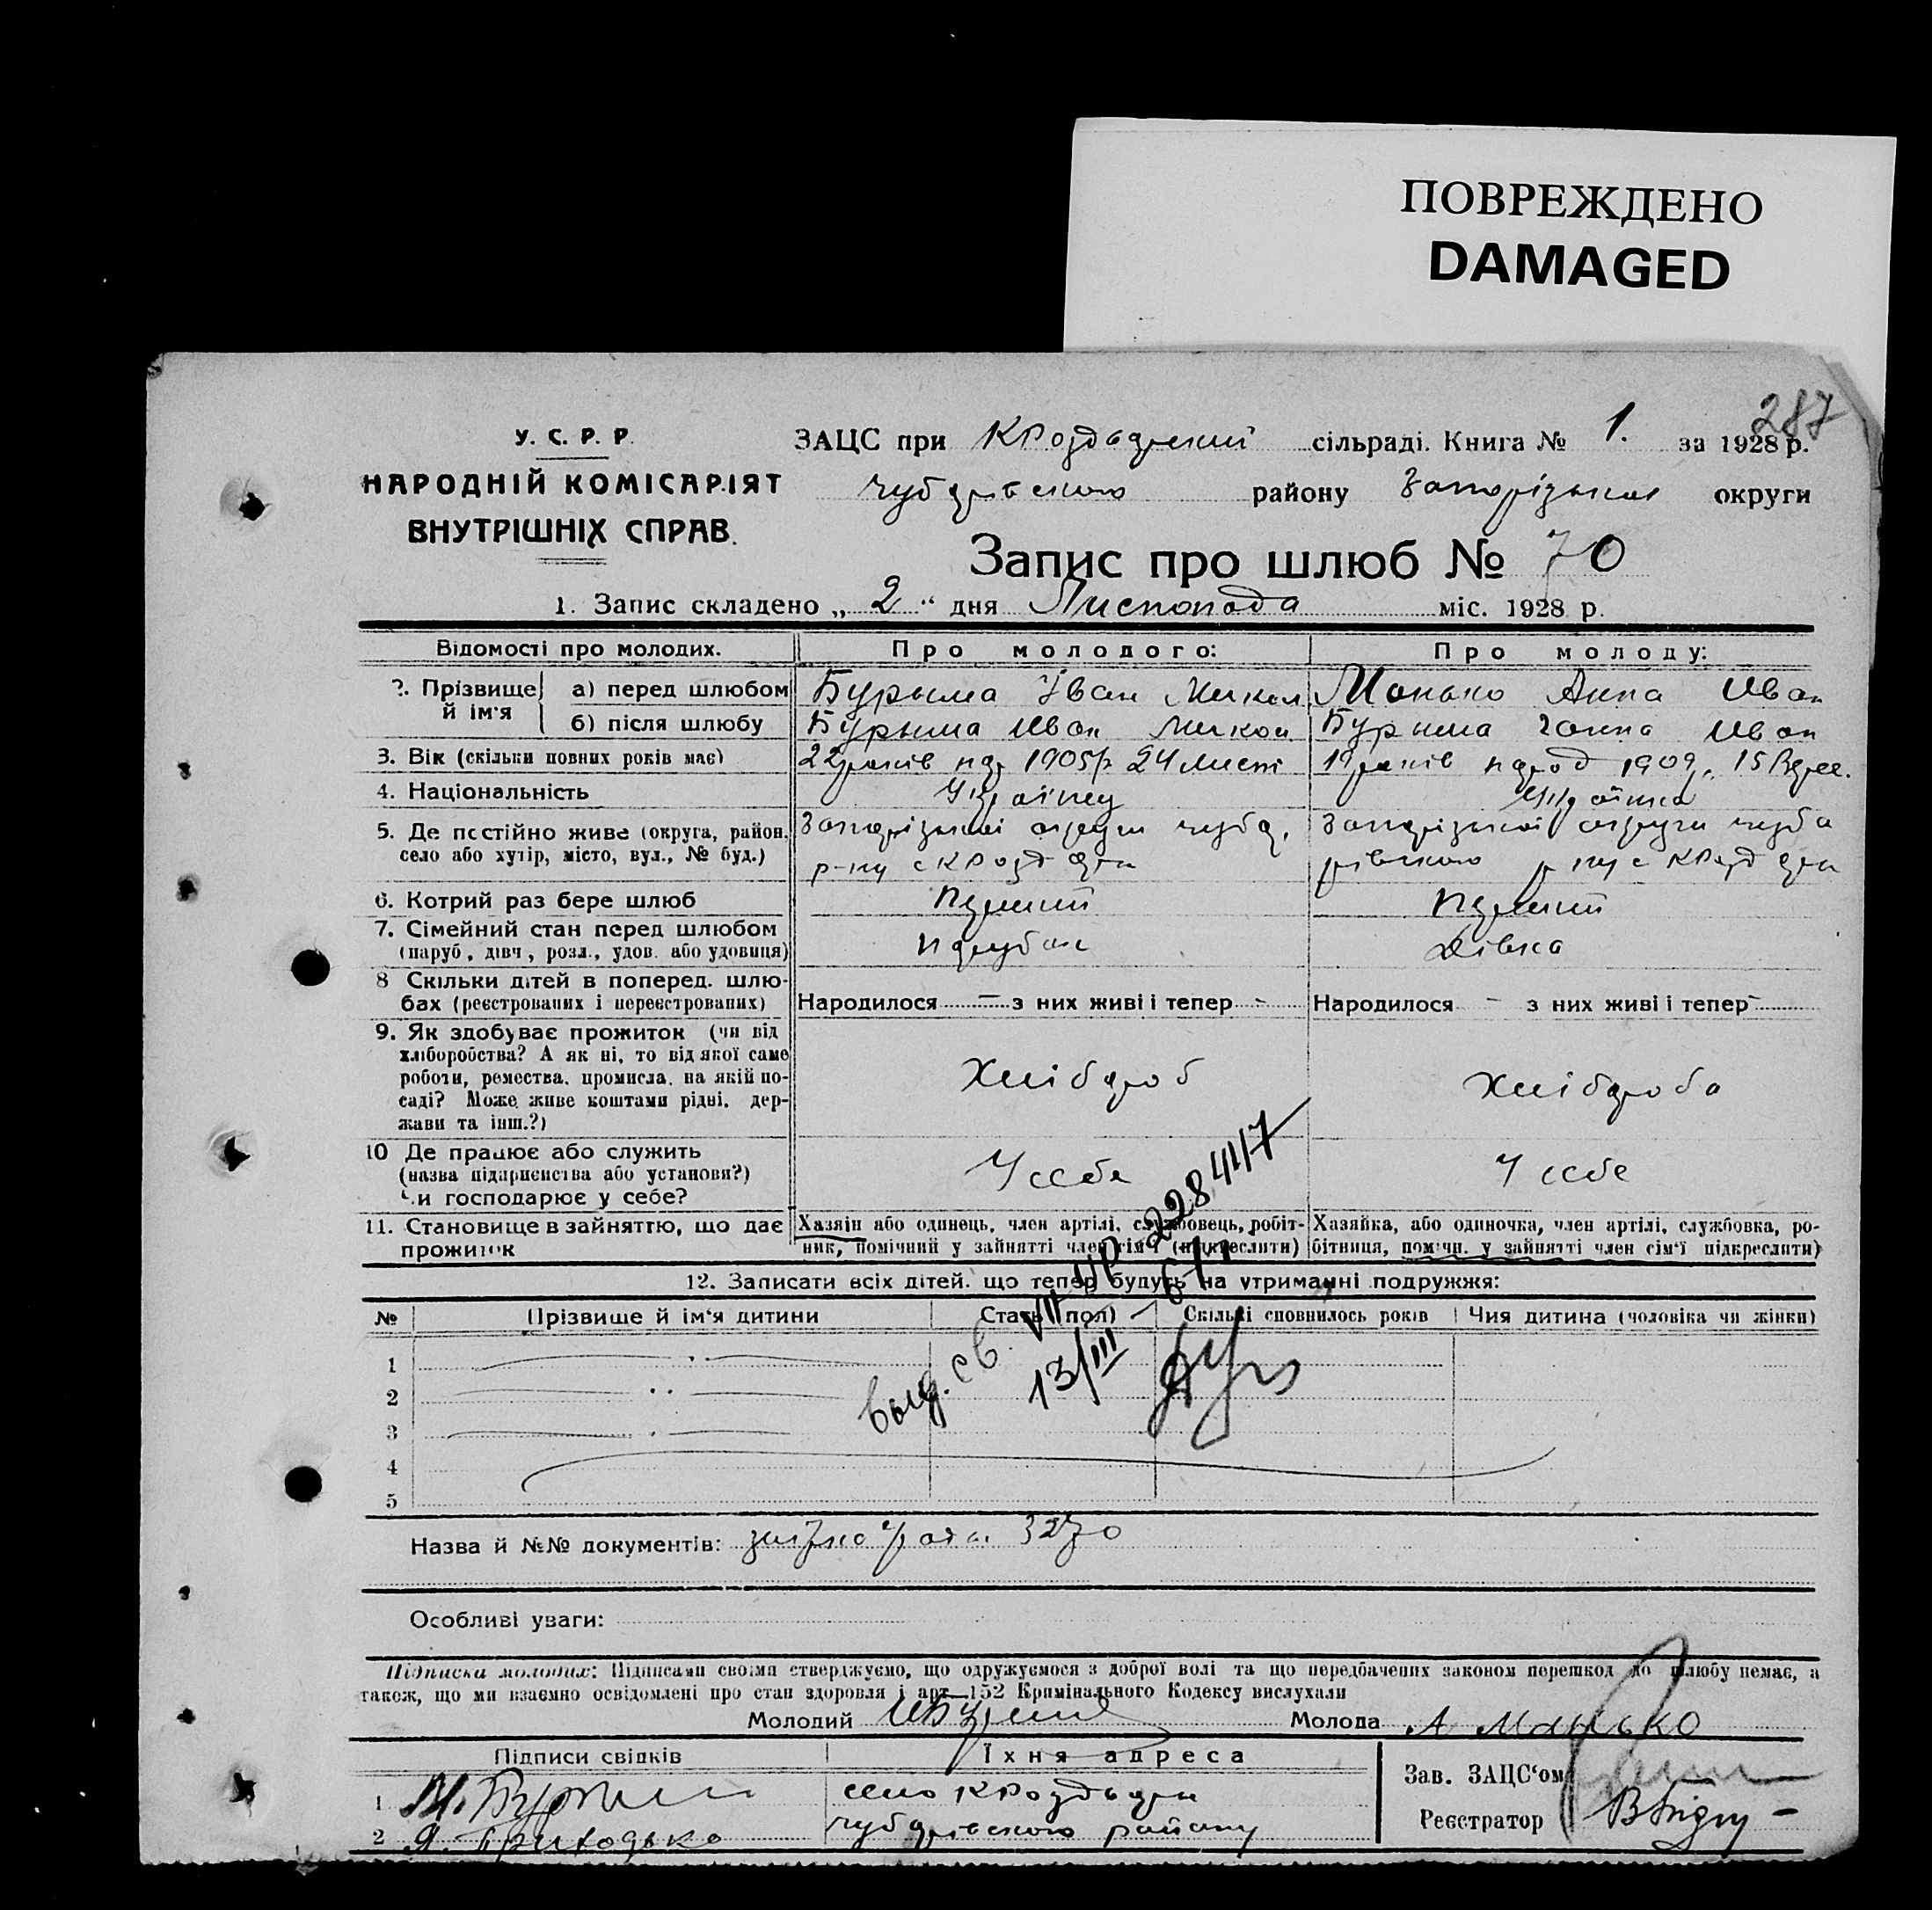 ПОВРЕЖДЕНО
DAMAGED
287
У. С. Р. Р.
НАРОДНІЙ КОМІСАРІЯТ
ВНУТРІШНІХ СПРАВ.
ЗАЦС при КРоздорській сільраді. Книга № 1. за 1928 р.
Чубарівського району Запорізької округи
Запис про шлюб № 70
1. Запис складено „ 2 “ дня Листопада міс. 1928 р.
Відомості про молодих. Про молодого: Про молоду:
2. Прізвище й ім'я а) перед шлюбом Бурыма Іван Микол Манько Анна Иван
б) після шлюбу Бурыма Иван Микол Бурыма Ганна Иван
3. Вік (скільки повних років має) 22 років нар 1905 р 24 Лист 19 років народ 1909 15
4. Національність Українец Українка
5. Де постійно живе (округа, район, село або хутір, місто, вул., № буд.) Запорізької округи чубар. р-ну с КРоздори Запорізької округи чуба рівского р ну с КРоздори
6. Котрий раз бере шлюб Перший Перший
7. Сімейний стан перед шлюбом Парубок Дівка
(паруб., дівч., розл., удов. або удовиця)
8 Скільки дітей в поперед. шлюбах (реєстрованих і нереєстрованих) Народилося — з них живі і тепер - Народилося - з них живі і тепер -
9. Як здобуває прожиток (чи від
хліборобства? А як ні, то від якої саме
роботи, ремества, промисла, на якій по-
саді? Може живе коштами рідні, дер-
жави та інш.?) Хлібороб Хлібороба
10 Де працює або служить
(назва підприємства або установи?)
Чи господарює у себе? У себе У себе
11. Становище в зайняттю, що дає прожиток Хазяїн або одинець, член артілі, службовець, робіт-
ник, помічний у зайнятті член сім'ї (підкреслити) Хазяйка, або одиночка, член артілі, службовка, ро-
бітниця, помічн. у зайнятті член сім'ї підкреслити)
12. Записати всіх дітей, що тепер будуть на утриманні подружжя:
№ Прізвище й ім'я дитини Стать (пол) Скількі сповнилось років Чия дитина (чоловіка чи жінки)
1
2
3
4
5
выд. св. VII УР 228447
13/III
Назва й №№ документів: 3270
Особливі уваги:
Підписка молодих: Підписами своїми стверджуємо, що одружуємося з доброї волі та що передбачених законом перешкод до шлюбу немає, а
також, що ми взаємно освідомлені про стан здоровля і арт. 152 Кримінального Кодексу вислухали
Молодий ИБурыма Молода А Манько
Підписи свідків Їхня адреса
1 И. Бурыма село КРоздори
2 Я. Приходько чубарівского району
Зав. ЗАЦС'ом
Реєстратор